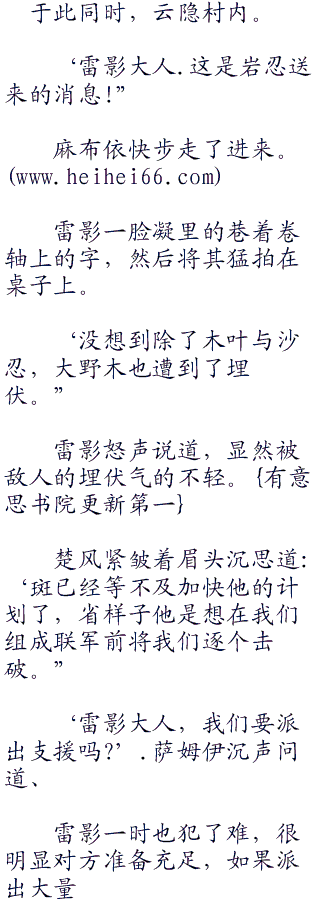 于此同时，云隐村内。
‘雷影大人.这是岩忍送
来的消息!”
麻布依快步走了进来。
(www.heihei66.com)
雷影一脸凝里的巷着卷
轴上的字，然后将其猛拍在
桌子上。
‘没想到除了木叶与沙
忍，大野木也遭到了埋
伏。”
雷影怒声说道，显然被
敌人的埋伏气的不轻。{有意
思书院更新第一}
楚风紧皱着眉头沉思道:
‘斑已经等不及加快他的计
划了，省样子他是想在我们
组成联军前将我们逐个击
破。”
‘雷影大人，我们要派
出支援吗?’.萨姆伊沉声问
道、
雷影一时也犯了难，很
明显对方准备充足，如果派
出大量